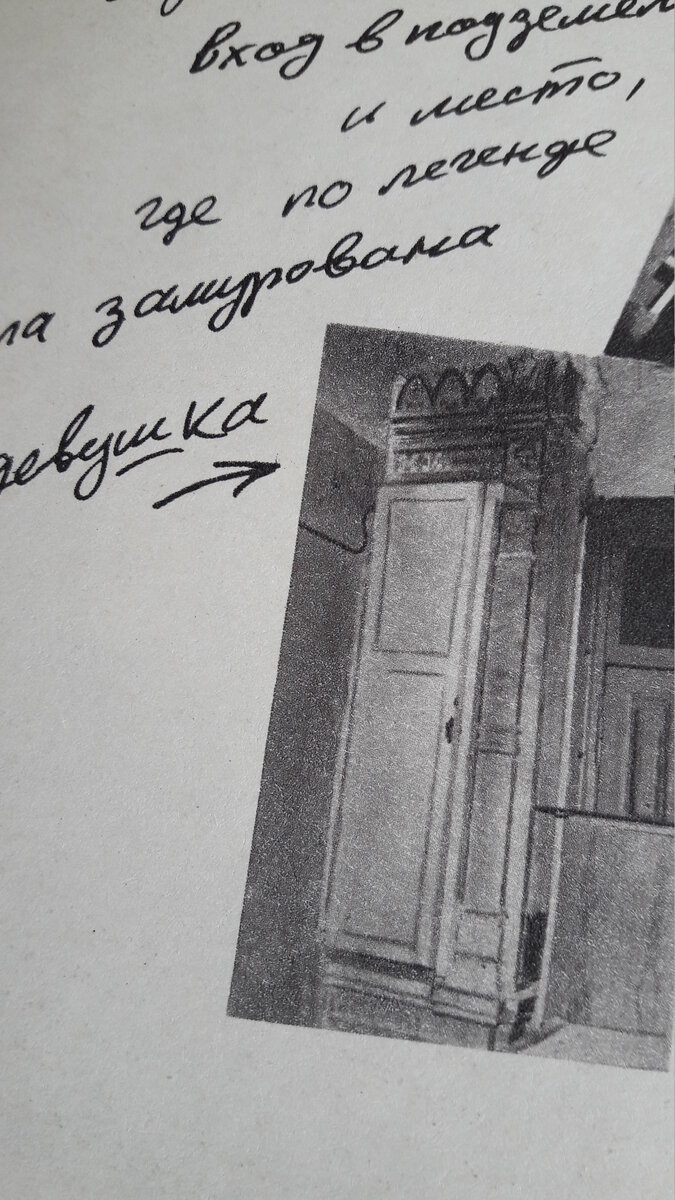 вход в подземел
и место,
где по легенде
ла замурована
девушка